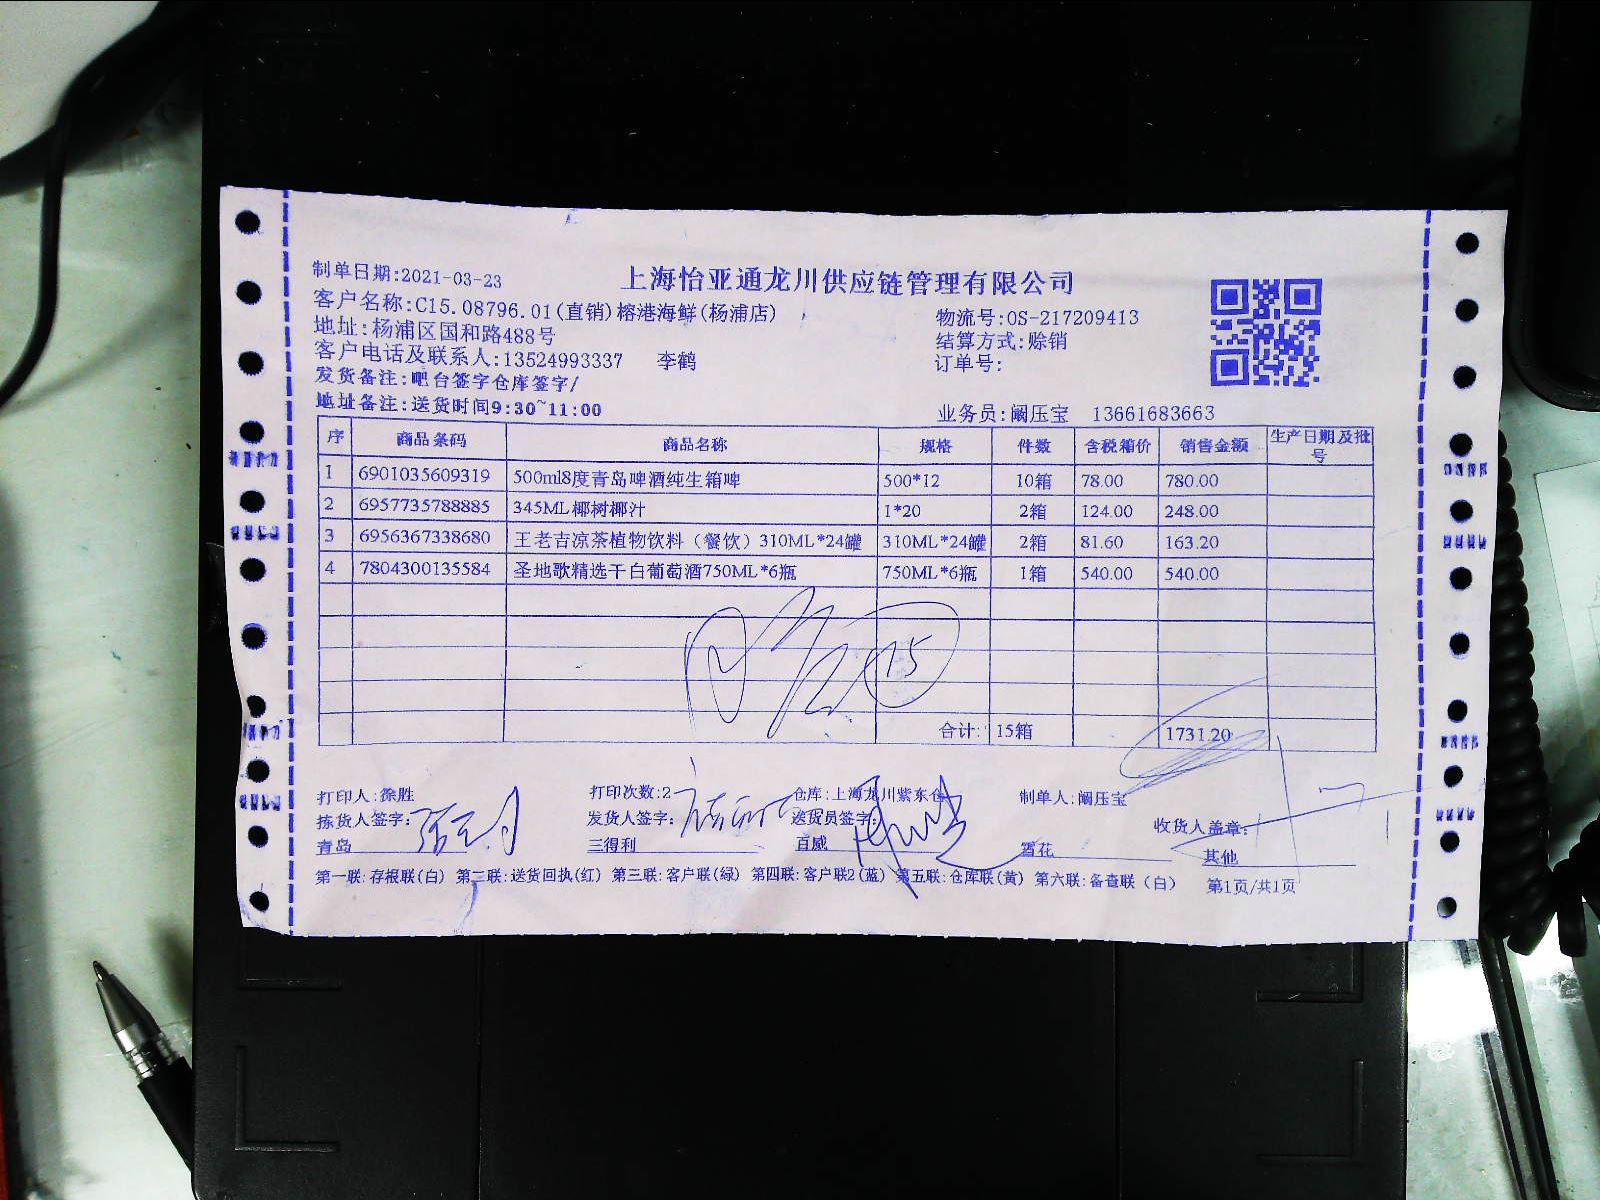 制单日期:2021-03-23
上海怡亚通龙川供应链管理有限公司
客户名称:C15.08796.01(直销)榕港海鲜(杨浦店)
物流号:OS-217209413
地址:杨浦区国和路488号
结算方式:赊销
客户电话及联系人:13524993337 李鹤
订单号:
发货备注:吧台签字仓库签字/
地址备注:送货时间9:30~11:00
业务员:阚压宝 13661683663
序 商品条码 商品名称 规格 件数 含税箱价 销售金额 生产日期及批号
1 6901035609319 500ml8度青岛啤酒纯生箱啤 500*12 10箱 78.00 780.00
2 6957735788885 345ML椰树椰汁 1*20 2箱 124.00 248.00
3 6956367338680 王老吉凉茶植物饮料（餐饮）310ML*24罐 310ML*24罐 2箱 81.60 163.20
4 7804300135584 圣地歌精选干白葡萄酒750ML*6瓶 750ML*6瓶 1箱 540.00 540.00
15
合计: 15箱 1731.20
打印人:徐胜 打印次数:2 仓库:上海龙川紫东仓 制单人:阚压宝
拣货人签字: 发货人签字: 送货员签字: 收货人盖章:
青岛 三得利 百威 雪花 其他
第一联:存根联(白) 第二联:送货回执(红) 第三联:客户联(绿) 第四联:客户联2(蓝) 第五联:仓库联(黄) 第六联:备查联（白） 第1页/共1页